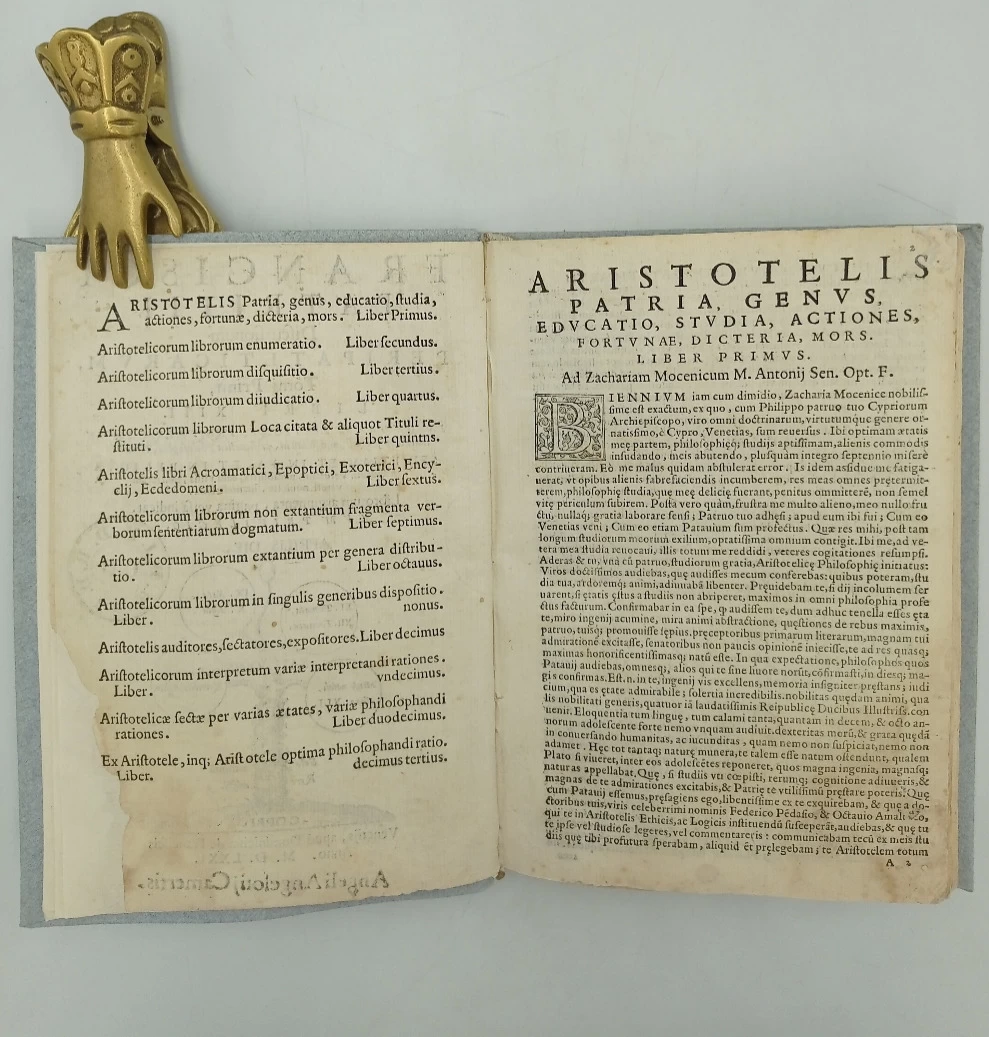 ARISTOTELIS Patria, genus, educatio, ſtudia,
actiones, fortunæ, dicteria, mors. Liber Primus.
Ariſtotelicorum librorum enumeratio. Liber ſecundus.
Ariſtotelicorum librorum diſquiſitio. Liber tertius.
Ariſtotelicorum librorum diiudicatio. Liber quartus.
Ariſtotelicorum librorum Loca citata & aliquot Tituli re-
ſtituti. Liber quintus.
Ariſtotelis libri Acroamatici, Epoptici, Exoterici, Ency-
clij, Ecdedomeni. Liber ſextus.
Ariſtotelicorum librorum non extantium fragmenta ver-
borum ſententiarum dogmatum. Liber ſeptimus.
Ariſtotelicorum librorum extantium per genera diſtribu-
tio. Liber octauus.
Ariſtotelicorum librorum in ſingulis generibus diſpoſitio.
Liber. nonus.
Ariſtotelis auditores, ſectatores, expoſitores. Liber decimus
Ariſtotelicorum interpretum variæ interpretandi rationes.
Liber. vndecimus.
Ariſtotelicæ ſectæ per varias ætates, variæ philoſophandi
rationes. Liber duodecimus.
Ex Ariſtotele, inq; Ariſtotele optima philoſophandi ratio.
Liber. decimus tertius.
2
ARISTOTELIS
PATRIA, GENVS,
EDVCATIO, STVDIA, ACTIONES,
FORTVNAE, DICTERIA, MORS.
LIBER PRIMVS.
Ad Zachariam Mocenicum M. Antonij Sen. Opt. F.
BIENNIVM iam cum dimidio, Zacharia Mocenice nobiliſ-
ſime eſt exactum, ex quo, cum Philippo patruo tuo Cypriorum
Archiepiſcopo, viro omni doctrinarum, virtutumque genere or-
natiſſimo, è Cypro, Venetias, ſum reuerſus. Ibi optimam ætatis
meę partem, philoſophięq; ſtudijs aptiſſimam, alienis commodis
inſudando, meis abutendo, pluſquàm integro ſeptennio miſerè
contriueram. Eò me malus quidam abſtulerat error. Is idem aſſidue me fatiga-
uerat, vt opibus alienis fabrefaciendis incumberem, res meas omnes prętermit-
terem, philoſophię ſtudia, que meę delicię fuerant, penitus ommitterē, non ſemel
vitę periculum ſubirem. Poſtą vero quàm, fruſtra me multo alieno, meo nullo fru
ctu, nullaq; gratia laborare ſenſi; Patruo tuo adhęſi; apud eum ibi fui; Cum eo
Venetias veni; Cum eo etiam Patauium ſum profectus. Quæ res mihi, poſt tam
longum ſtudiorum meorum exilium, optatiſſima omnium contigit. Ibi me, ad ve-
tera mea ſtudia reuocaui, illis totum me reddidi, veteres cogitationes reſumpſi.
Aderas & tu, vnà cū patruo, ſtudiorum gratia, Ariſtotelicę Philoſophię initiatus:
Viros doctiſſimos audiebas, que audiſſes mecum conferebas: quibus poteram, ſtu
dia tua, ardoremq; animi, adiuuabā libenter. Pręuidebam te, ſi dij incolumem ſer
uarent, ſi ętatis ęſtus a ſtudijs non abriperet, maximos in omni philoſophia profe
ctus facturum. Confirmabar in ea ſpe, ꝙ audiſſem te, dum adhuc tenella eſſes ęta
te, miro ingenij acumine, mira animi abſtractione, quęſtiones de rebus maximis,
patruo, tuisq; promouiſſe ſępius. pręceptoribus primarum literarum, magnam tui
admirationē excitaſſe, ſenatoribus non paucis opinionē inieciſſe, te ad res quaſq;
maximas honorificentiſſimasq; natū eſſe. In qua expectatione, philoſophos quos
Patauij audiebas, omnesq; alios qui te ſine liuore norūt, cōfirmaſti, in diesq; ma-
gis confirmas. Eſt. n. in te, ingenij vis excellens, memoria inſigniter pręſtans; iudi
cium, qua es ętate admirabile; ſolertia incredibilis. nobilitas quędam animi, qua
lis nobilitati generis, quatuor iā laudatiſſimis Reipublicę Ducibus Illuſtriſs. con
uenit. Eloquentia tum linguę, tum calami tanta, quantam in decem, & octo an-
norum adoleſcente forte nemo vnquam audiuit. dexteritas morū, & grata quędā
in conuerſando humanitas, ac iucunditas, quam nemo non ſuſpiciat, nemo non
adamet. Hęc tot tantaq; naturę munera, te talem eſſe natum oſtendunt, qualem
Plato ſi viueret, inter eos adoleſcētes reponeret, quos magna ingenia, magnaſq;
naturas appellabat. Quę, ſi ſtudijs vti cœpiſti, rerumq; cognitione adiuueris, &
magnas de te admirationes excitabis, & Patrię te vtiliſſimū pręſtare poteris. Quę
cum Patauij eſſemus, pręſagiens ego, libentiſſime ex te exquirebam, & quę a do-
ctoribus tuis, viris celeberrimi nominis Federico Pędaſio, & Octauio Amalthęo,
qui te in Ariſtotelis Ethicis, ac Logicis inſtituendū ſuſceperāt, audiebas, & quę tu
te ipſe vel ſtudioſe legeres, vel commentareris: communicabam tecū ex meis ſtu
dijs quę tibi profutura ſperabam, aliquid et pręlegebam; te Ariſtotelem totum
A 2